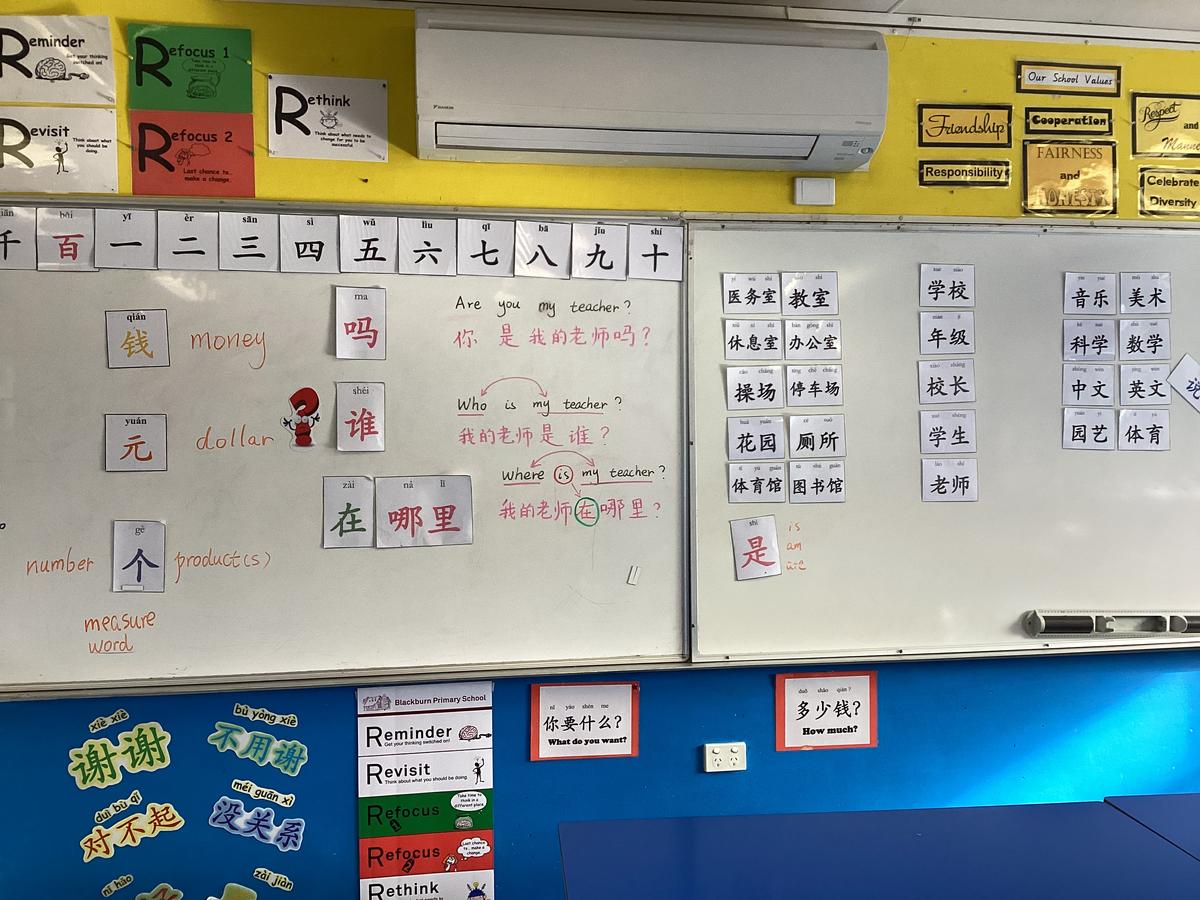 Reminder
Get your thinking switched on!
Refocus 1
Take time to think in a different place.
Rethink
Think about what needs to change for you to be successful.
Revisit
Think about what you should be doing.
Refocus 2
Last chance to... make a change.
DAIKIN
Our School Values
Friendship
Cooperation
Respect
and
Responsibility
FAIRNESS
and
HONESTY
Celebrate
Diversity
bǎi yī èr sān sì wǔ liu qī bā jiǔ shí
千 百 一 二 三 四 五 六 七 八 九 十
qián
钱 money
yuán
元 dollar
gè
number 个 product(s)
measure
word
ma
吗
shéi
谁
zài nǎ lǐ
在 哪里
Are you my teacher?
你 是 我的老师吗?
Who is my teacher?
我的老师是 谁?
Where is my teacher?
我的老师在哪里?
医务室 教室
休息室 办公室
操场 停车场
花园 厕所
体育馆 图书馆
shì
是 is
am
are
学校
年级
校长
学生
老师
音乐 美术
科学 数学
中文 英文
园艺 体育
xiè xiè
谢谢
bù yòng xiè
不用谢
duì bù qǐ
对不起
méi guān xì
没关系
nǐ hǎo
zài jiàn
Blackburn Primary School
Reminder
Get your thinking switched on!
Revisit
Think about what you should be doing.
Refocus
1
Take time to think in a different place.
Refocus
2
Last chance to... make a change.
Rethink
nǐ yào shén me
你要什么?
What do you want?
duō shǎo qián?
多少钱?
How much?